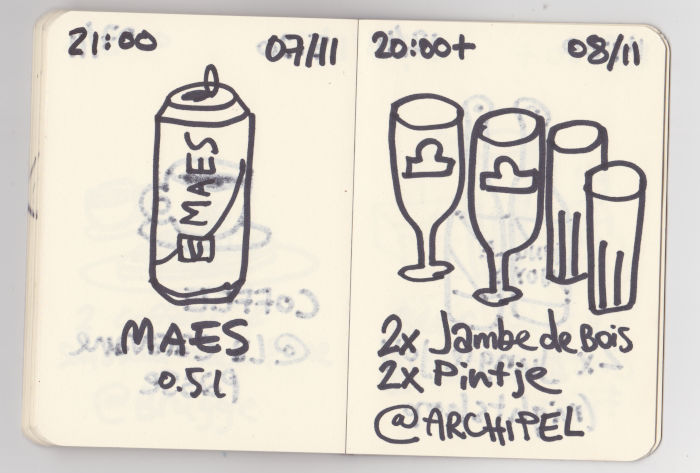 21:00 07/11
MAES
MAES
0.5l
20:00+ 08/11
2x Jambe de Bois
2x Pintje
@ARCHIPEL